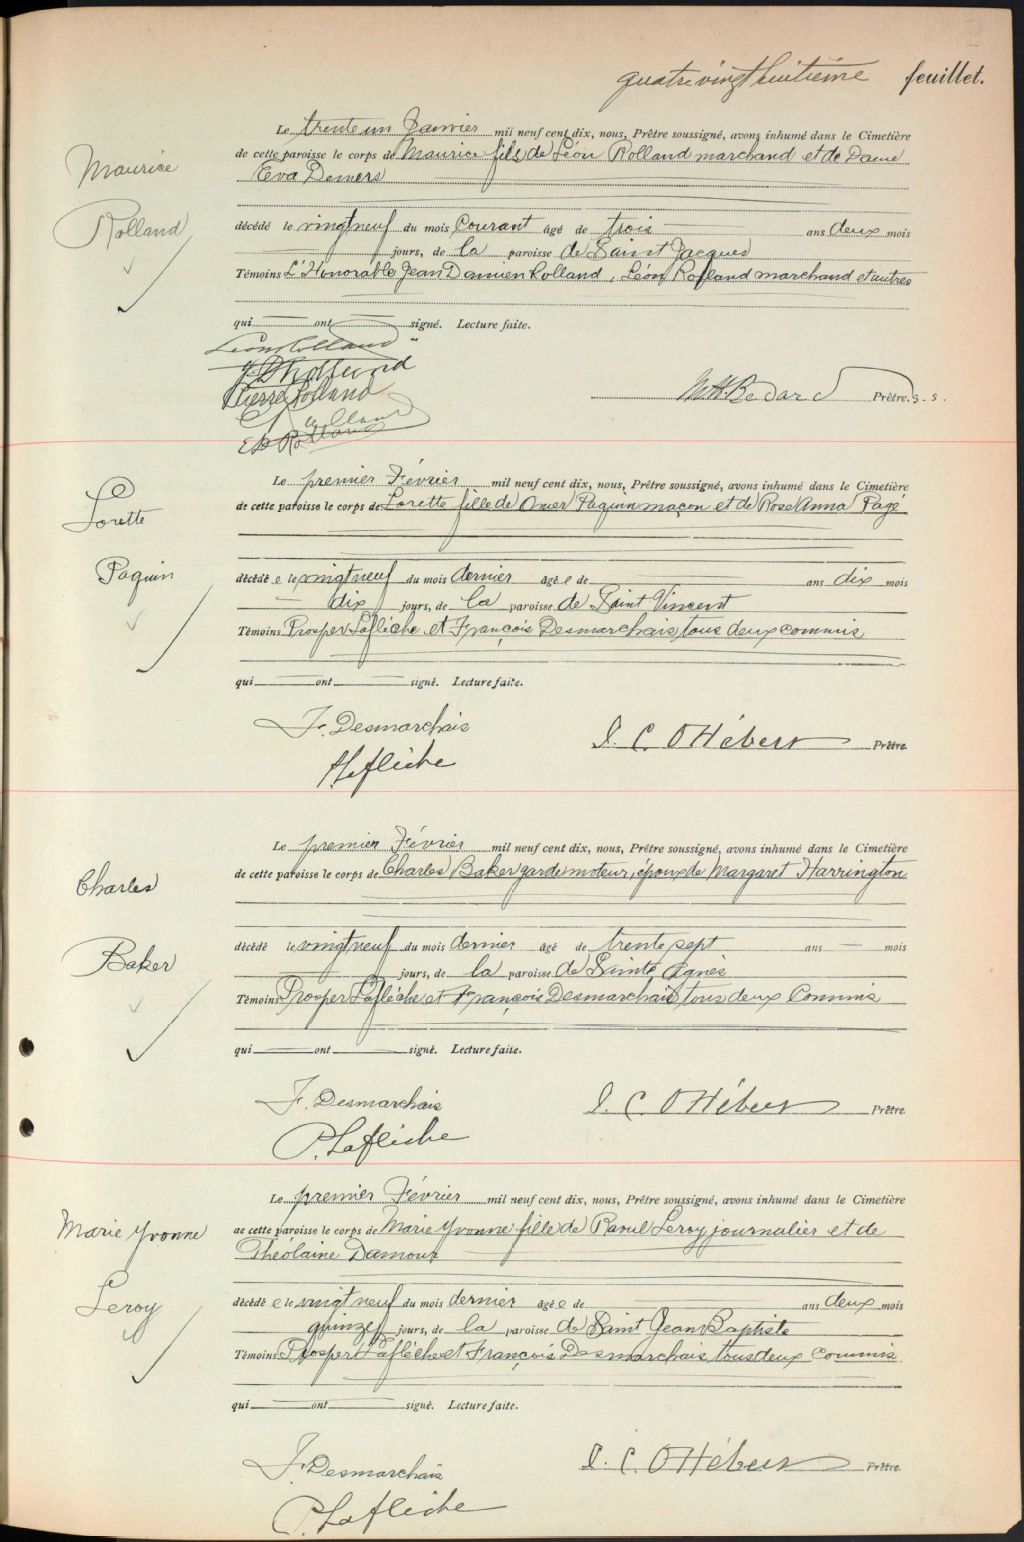 quatrevingthuitième feuillet.
Maurice
Rolland
Le trente un Janvier mil neuf cent dix, nous, Prêtre soussigné, avons inhumé dans le Cimetière
de cette paroisse le corps de Maurice fils de Léon Rolland marchand et de Dame
Eva Demers
décédé le vingtneuf du mois Courant âgé de trois ans deux mois
jours, de la paroisse de Saint Jacques
Témoins L'Honorable Jean Damien Rolland, Léon Rolland marchand et autres
qui ont signé. Lecture faite.
Léon Rolland
J D Rolland
Pierre Rolland
Rolland
Rolland
Bedard Prêtre. s.
Lorette
Paquin
Le premier Février mil neuf cent dix, nous, Prêtre soussigné, avons inhumé dans le Cimetière
de cette paroisse le corps de Lorette fille de Omer Paquin maçon et de Rose Anna Pagé
décédé e le vingt neuf du mois dernier âgé e de ans dix mois
dix jours, de la paroisse de Saint Vincent
Témoins Prosper Laflèche et François Desmarchais tous deux commis
qui ont signé. Lecture faite.
F. Desmarchais
P. Laflèche
J. C. O Hébert Prêtre
Charles
Baker
Le premier Février mil neuf cent dix, nous, Prêtre soussigné, avons inhumé dans le Cimetière
de cette paroisse le corps de Charles Baker garde moteur, époux de Margaret Harrington
décédé le vingt neuf du mois dernier âgé de trente sept ans mois
jours, de la paroisse de Sainte Agnès
Témoins Prosper Laflèche et François Desmarchais tous deux Commis
qui ont signé. Lecture faite.
F. Desmarchais
P. Laflèche
J. C. O Hébert Prêtre
Marie Yvonne
Leroy
Le premier Février mil neuf cent dix, nous, Prêtre soussigné, avons inhumé dans le Cimetière
de cette paroisse le corps de Marie Yvonne fille de Raoul Leroy journalier et de
Théolaine Damour
décédé e le vingt neuf du mois dernier âgé e de ans deux mois
quinze jours, de la paroisse de Saint Jean Baptiste
Témoins Prosper Laflèche et François Desmarchais tous deux Commis
qui ont signé. Lecture faite.
F. Desmarchais
P. Laflèche
J. C. O Hébert Prêtre